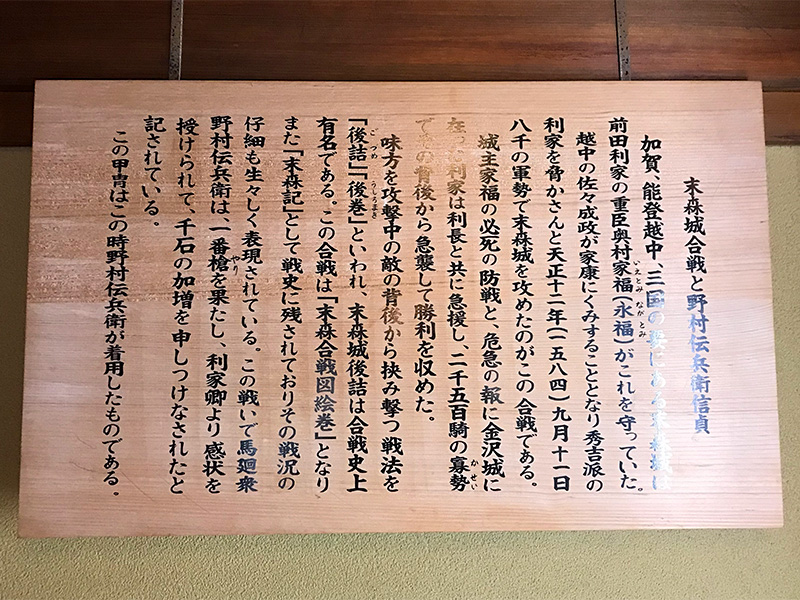 末森城合戦と野村伝兵衛信貞
加賀、能登越中、三国の要にある末森城は
前田利家の重臣奥村家福(永福)がこれを守っていた。
いえとみ ながとみ
越中の佐々成政が家康にくみすることとなり秀吉派の
利家を脅かさんと天正十二年(一五八四)九月十一日
八千の軍勢で末森城を攻めたのがこの合戦である。
城主家福の必死の防戦と、危急の報に金沢城に
在った利家は利長と共に急援し、二千五百騎の寡勢
かせい
でその背後から急襲して勝利を収めた。
味方を攻撃中の敵の背後から挟み撃つ戦法を
「後詰」「後巻」といわれ 末森城後詰は合戦史上
ごつめ うしろまき
有名である。この合戦は「末森合戦図絵巻」となり
また「末森記」として戦史に残されておりその戦況の
仔細も生々しく表現されている。この戦いで馬廻衆
野村伝兵衛は、一番槍を果たし、利家卿より感状を
やり
授けられて、千石の加増を申しつけなされたと
記されている。
この甲冑はこの時野村伝兵衛が着用したものである。